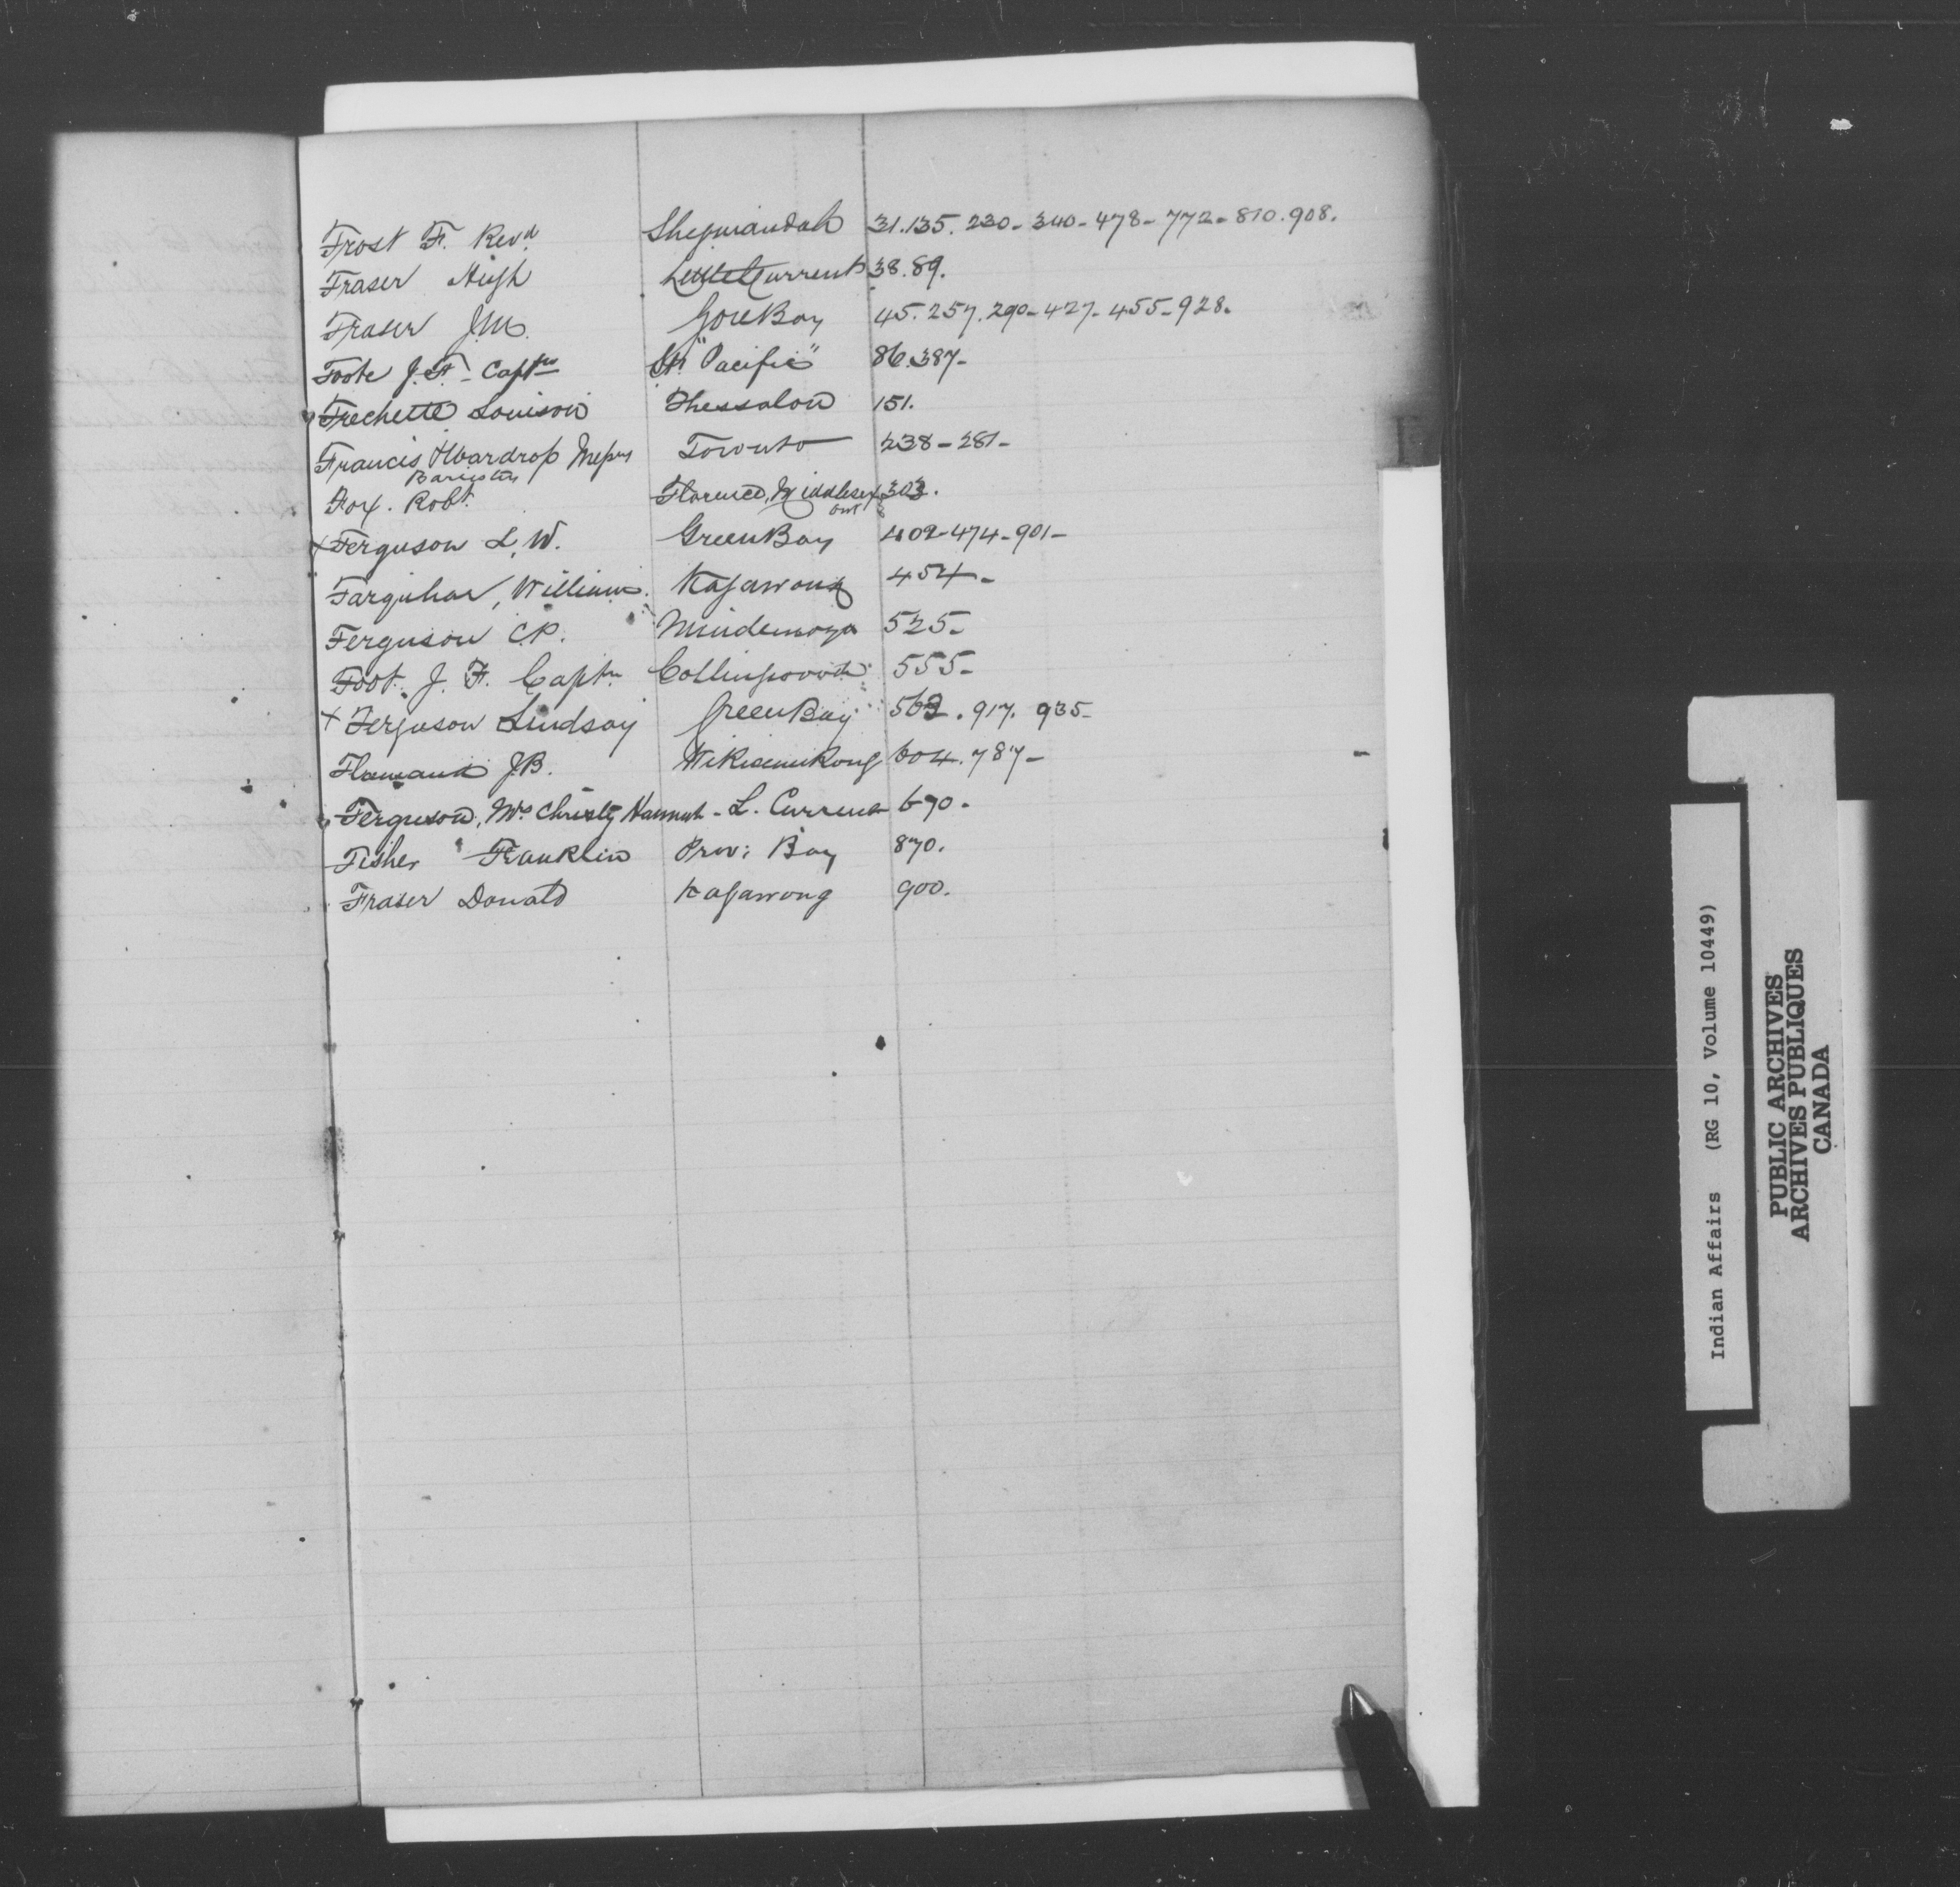 Frost F. Revd Shegwiandah 31.135.230-340-478-772-810.908.
Fraser Hugh Little Current 38.89.
Fraser J.M. Gore Bay 45.257.290-427-455-928.
Foote J.F. - Captn Str "Pacific" 86.387-
Frechette Louison Thessalon 151.
Francis & Wardrop Messrs Toronto 238-281-
Barristers
Fox. Robt. Florence, Middlesex 303.
Ont
x Ferguson L.W. Green Bay 402-474-901-
Farquhar, William. Kagawong 454-
Ferguson C.P. Mindemoya 525-
Foot. J.F. Captn Collingwood 555-
x Ferguson Lindsay Green Bay 563.917.935-
Flamand J.B. Wikwemikong 604.787-
Ferguson, Mrs Christy Hannah - L. Current 690.
Fisher Franklin Prov: Bay 870.
Fraser Donald Kagawong 900.
F
Indian Affairs (RG 10, Volume 10449)
PUBLIC ARCHIVES
ARCHIVES PUBLIQUES
CANADA